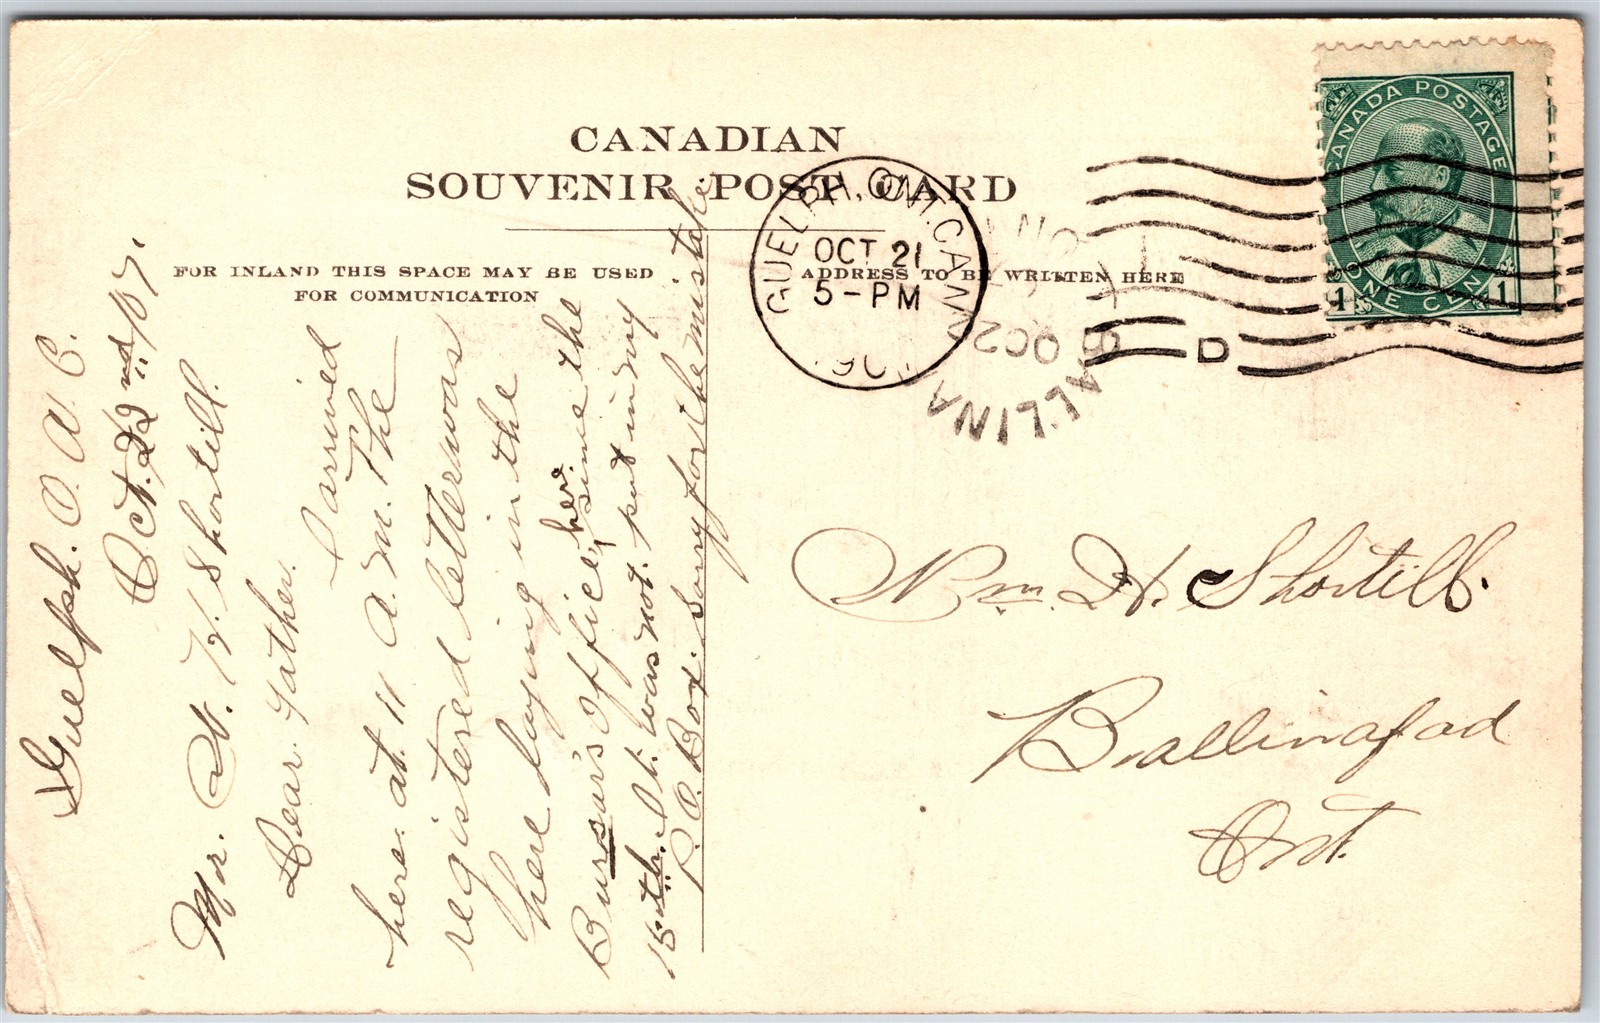 CANADIAN
SOUVENIR POST CARD
FOR INLAND THIS SPACE MAY BE USED
FOR COMMUNICATION
ADDRESS TO BE WRITTEN HERE
CANADA POSTAGE
1 ONE CENT 1
GUELPH, ONT. CANADA
OCT 21
5-PM
D
BALLINA
OC 2
Guelph. O. A. C.
Oct. 22nd /07.
Mr. W. H. Shortill.
Dear Father.
I arrived
here at 11 A.M. The
registered letter was
here laying in the
Bursar's Office, here since the
18th. It was not put in my
P.O. Box. Sorry for the mistake
Wm. H. Shortill.
Ballinafad
Ont.